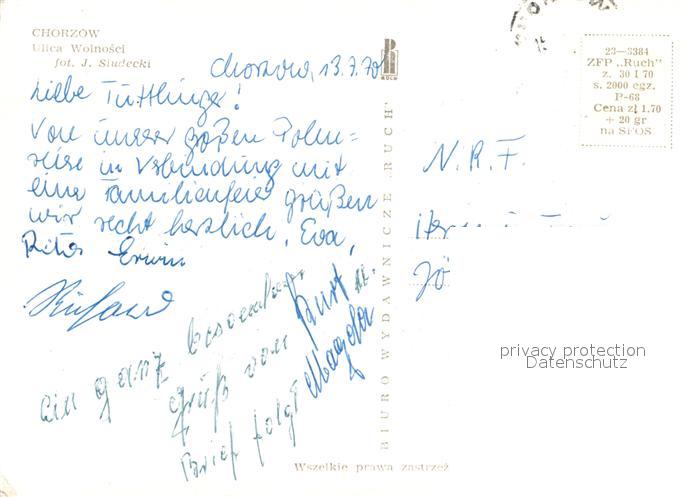 CHORZÓW
Ulica Wolności
fot. J. Siudecki
Chorzów, 13.7.70
Liebe Tuttlinger!
Von unser großen Polen=
reise in Verbindung mit
eine Familienfeier grüßen
wir recht herzlich, Eva,
Rita Erwin
Ein ganz besonderer
Gruß von Kurt u.
Brief folgt Magda
RUCH
BIURO WYDAWNICZE „RUCH”
23—3384
ZFP „Ruch”
z. 30 I 70
s. 2000 egz.
P-68
Cena zł 1.70
+ 20 gr
na SFOS
N.R.F.
privacy protection
Datenschutz
Wszelkie prawa zastrzeż